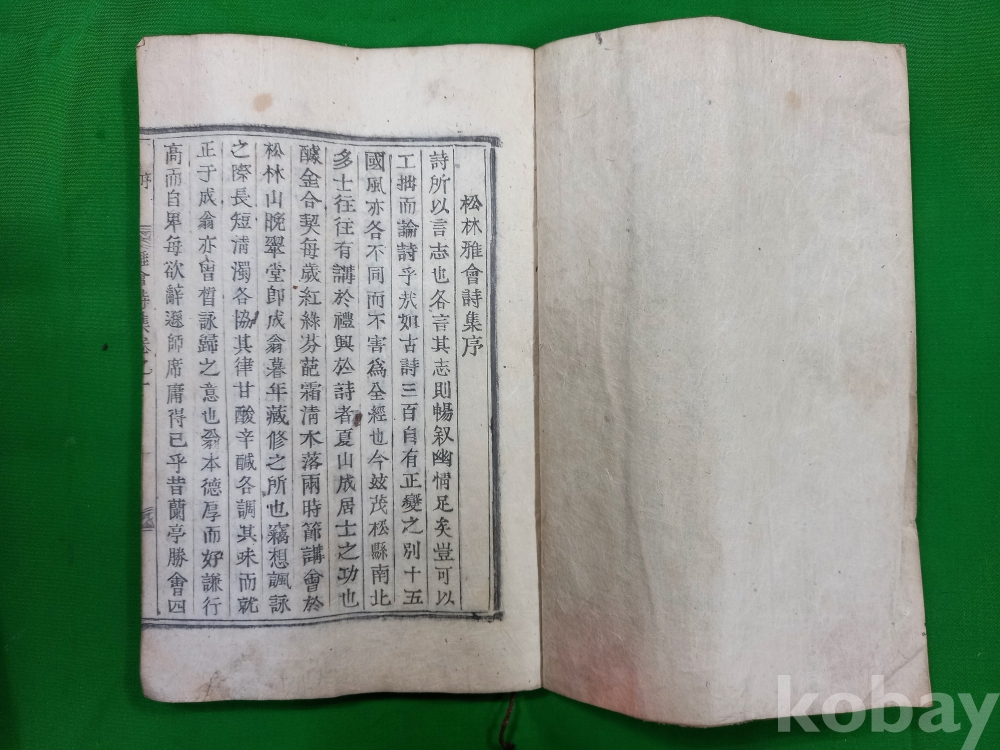 松林雅會詩集序
詩所以言志也各言其志則暢叙幽情足矣豈可以
工拙而論詩乎哉如古詩三百自有正變之別十五
國風亦各不同而不害爲全經也今玆茂松縣南北
多士往往有講於禮興於詩者夏山成居士之功也
醵金合契每歲紅綠芬葩霜淸木落兩時節講會於
松林山晚翠堂卽成翁暮年藏修之所也竊想諷詠
之際長短淸濁各協其律甘酸辛醎各調其味而就
正于成翁亦曾晳詠歸之意也翁本德厚而好謙行
高而自卑每欲辭遜師席庸得已乎昔蘭亭勝會四
雅會詩集卷之一
序
kobay